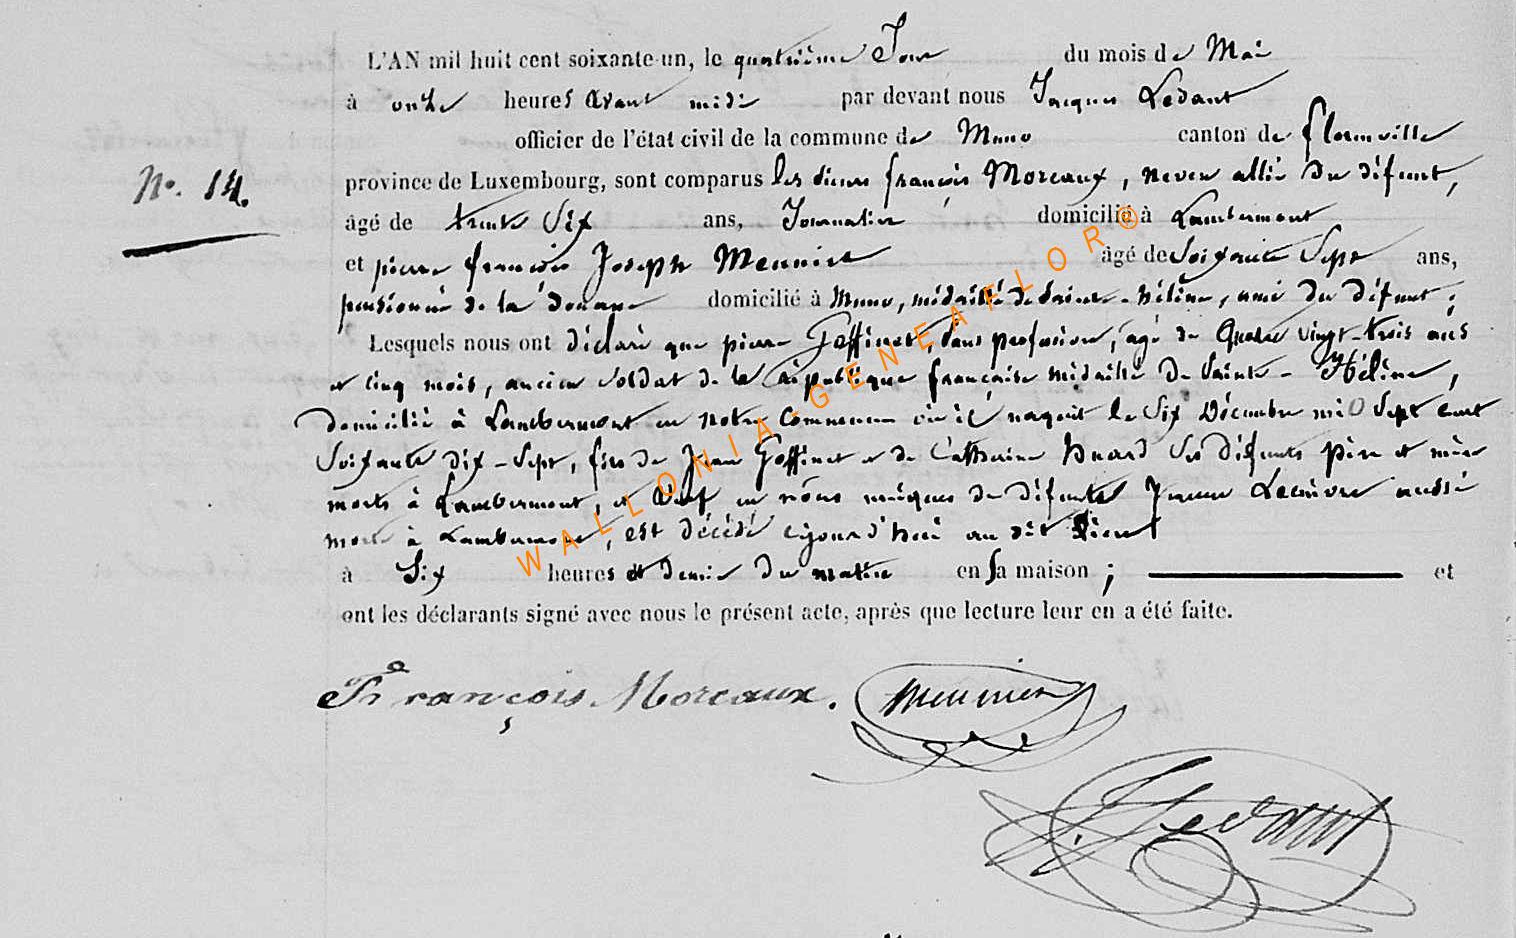 L'AN mil huit cent soixante-un, le quatrième Jour du mois de Mai
à onze heures avant midi par devant nous Jacques Ledant
officier de l'état civil de la commune de Muno canton de florenville
No. 14.
province de Luxembourg, sont comparus les sieurs françois Moreaux, neveu allié du défunt,
âgé de trente Six ans, Journalier domicilié à Lambermont
et pierre françois Joseph Meunier âgé de Soixante Sept ans,
pensionné de la douane domicilié à Muno, médaillé de Sainte-hélène, ami du défunt;
Lesquels nous ont déclaré que pierre Goffinet, Sans profession, âgé de Quatre vingt-trois ans
et cinq mois, ancien Soldat de la république française médaillé de Sainte-Hélène,
domicilié à Lambermont en notre commune où il naquit le Six Décembre mil Sept cent
Soixante dix-Sept, fils de Jean Goffinet et de Catherine huard Ses défunts père et mère
morts à Lambermont, et veuf en noces de défunte aussi
morte à Lambermont, est décédé cejourd'hui au dit lieu
à Six heures et demie du matin en sa maison ; et
ont les déclarants signé avec nous le présent acte, après que lecture leur en a été faite.
François Moreaux. Meunier
J. Ledant
WALLONIA-GENEAFLOR®